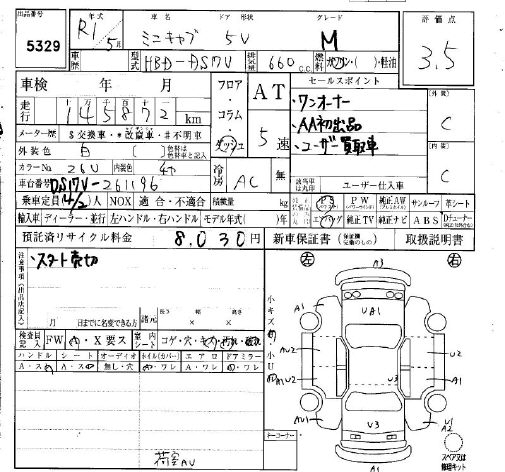 出品番号 5329
年式 R1 / 5月
車名 ミニキャブ
ドア 形状 5V
グレード M
評価点 3.5
車歴
型式 HBD-DS17V
排気量 660 c.c.
燃料 ガソリン・( )・軽油
車検 年 月
フロア・コラム・ダッシュ
AT 5速
セールスポイント
・ワンオーナー
・AA初出品
・ユーザー買取車
外装 C
内装 C
走行 十万 1 4 5 8 7 2 km
メーター歴 $ 交換車・* 改ざん車・# 不明車
外装色 白
カラーNo 26U 内装色
車台番号 DS17V-261196
冷房 AC
無
ユーザー仕入車
乗車定員 (4/2)人 NOX 適合・不適合 積載量 kg
PS PW 純正AW サンルーフ 革シート
輸入車 ディーラー・並行 左ハンドル・右ハンドル モデル年式( )年
エアバッグ 純正TV 純正ナビ ABS
預託済リサイクル料金 8,030円
新車保証書 取扱説明書
注意事項
・スタート売切
月 日までに名変できる方
諸元 長さ 幅 高さ
検査員記入 FW A・X要ス 室内シート コゲ・穴・
ハンドル シート オーディオ ホイル(カバー) エアロ ドアミラー
A・ス A・ス 無し・穴 ワレ A・ワレ ワレ
荷室AU
小キズ 小U
コーナー
左 右
A3
A1 UA1
AU2 U2
AU2 U3 A1
AU1 V3 U1 A2
A1
スペアタイヤ 修理キット